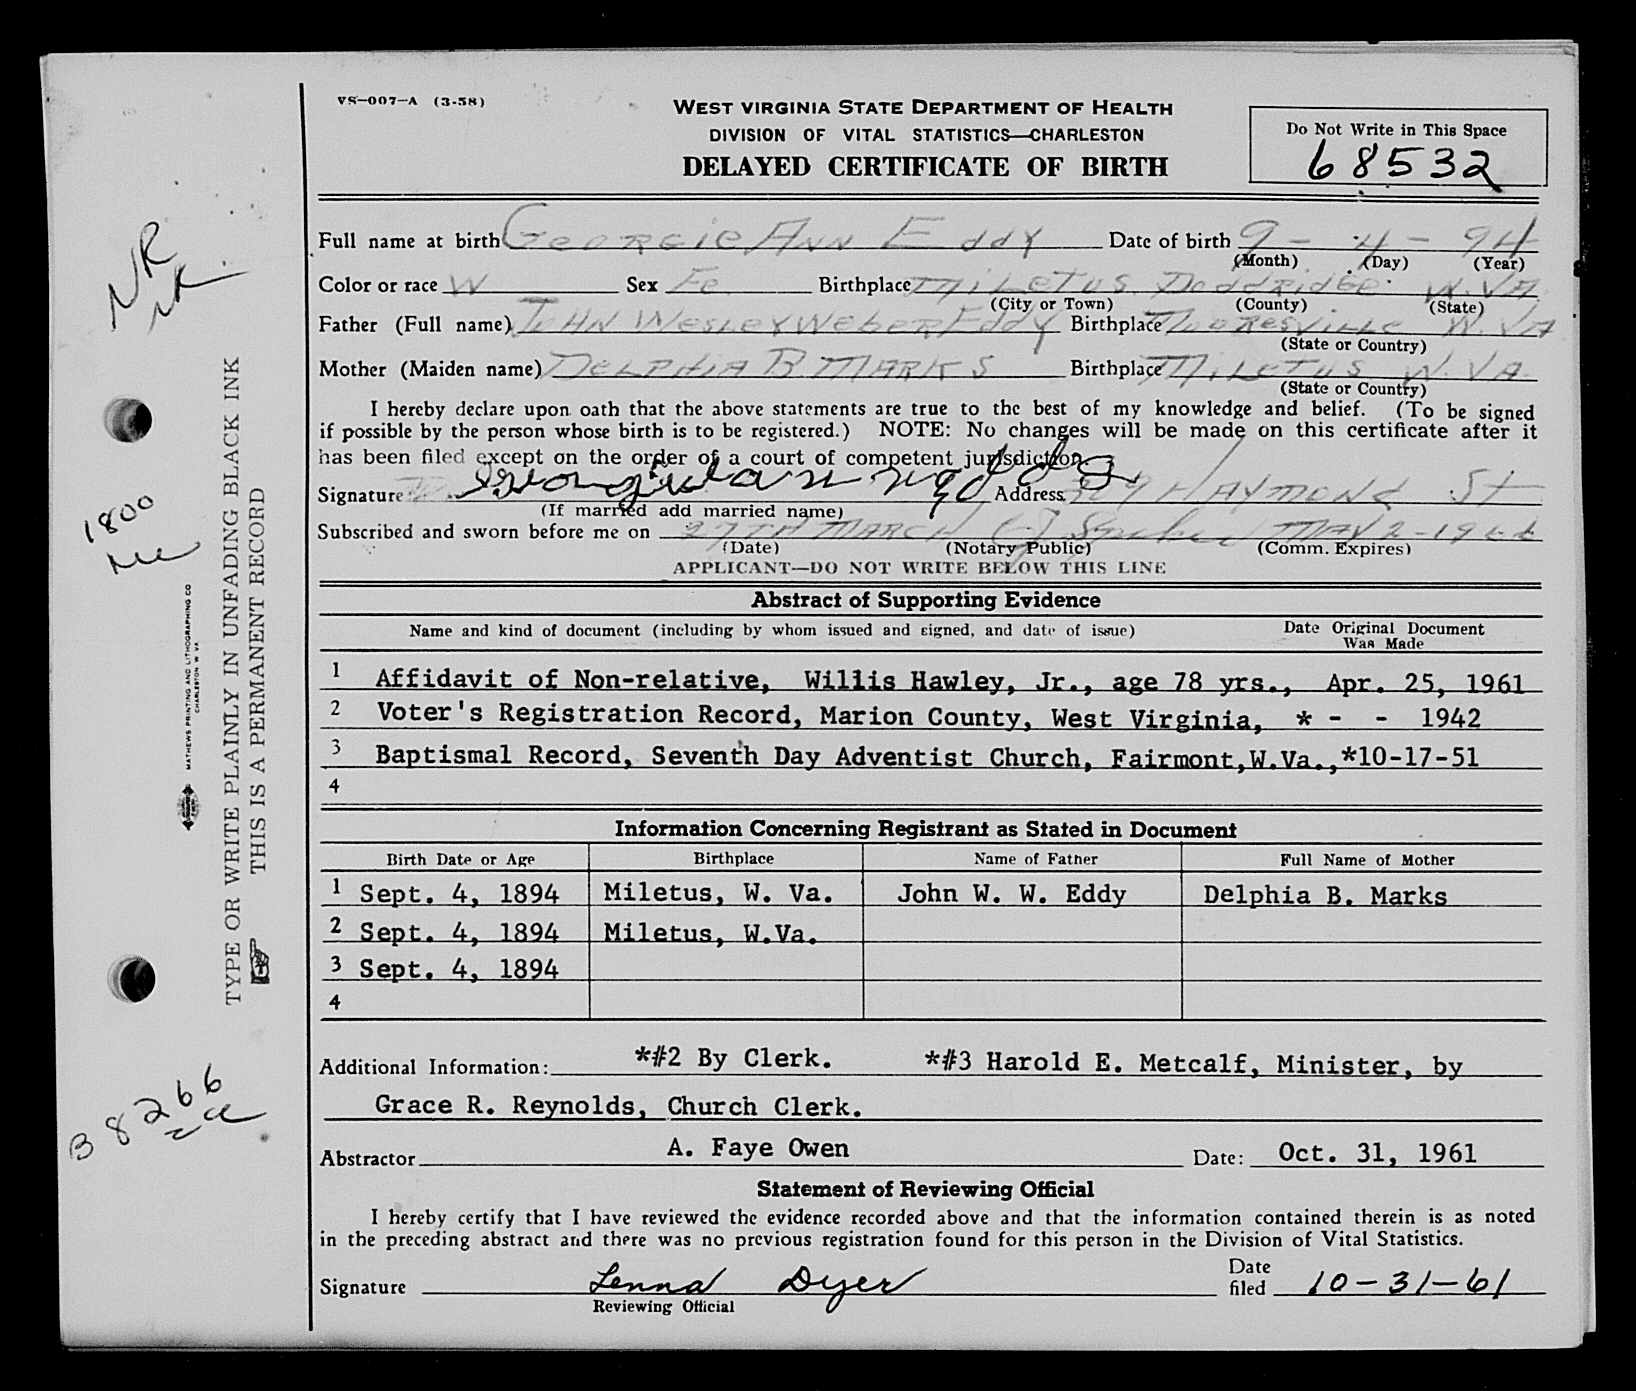 VS-007-A (3-58)
WEST VIRGINIA STATE DEPARTMENT OF HEALTH
DIVISION OF VITAL STATISTICS—CHARLESTON
DELAYED CERTIFICATE OF BIRTH
Do Not Write in This Space
68532
Full name at birth Georgie Ann Eddy Date of birth 9 - 4 - 94
(Month) (Day) (Year)
Color or race W Sex Fe Birthplace Miletus Doddridge W.VA
(City or Town) (County) (State)
Father (Full name) John Wesley Weber Eddy Birthplace W.VA
(State or Country)
Mother (Maiden name) Delphia B Marks Birthplace Miletus W.VA.
(State or Country)
I hereby declare upon oath that the above statements are true to the best of my knowledge and belief. (To be signed
if possible by the person whose birth is to be registered.) NOTE: No changes will be made on this certificate after it
has been filed except on the order of a court of competent jurisdiction.
Signature Address 309 Haymond St
(If married add married name)
Subscribed and sworn before me on 27TH MARCH MAY 2-19
(Date) (Notary Public) (Comm. Expires)
APPLICANT—DO NOT WRITE BELOW THIS LINE
Abstract of Supporting Evidence
Name and kind of document (including by whom issued and signed, and date of issue) Date Original Document
Was Made
1 Affidavit of Non-relative, Willis Hawley, Jr., age 78 yrs., Apr. 25, 1961
2 Voter's Registration Record, Marion County, West Virginia, * - - 1942
3 Baptismal Record, Seventh Day Adventist Church, Fairmont,W.Va.,*10-17-51
4
Information Concerning Registrant as Stated in Document
Birth Date or Age Birthplace Name of Father Full Name of Mother
1 Sept. 4, 1894 Miletus, W. Va. John W. W. Eddy Delphia B. Marks
2 Sept. 4, 1894 Miletus, W.Va.
3 Sept. 4, 1894
4
Additional Information: *#2 By Clerk. *#3 Harold E. Metcalf, Minister, by
Grace R. Reynolds, Church Clerk.
Abstractor A. Faye Owen Date: Oct. 31, 1961
Statement of Reviewing Official
I hereby certify that I have reviewed the evidence recorded above and that the information contained therein is as noted
in the preceding abstract and there was no previous registration found for this person in the Division of Vital Statistics.
Signature Lenna Dyer Date
filed 10-31-61
Reviewing Official
NR
1800
B 8266
TYPE OR WRITE PLAINLY IN UNFADING BLACK INK
THIS IS A PERMANENT RECORD
MATHEWS PRINTING AND LITHOGRAPHING CO
CHARLESTON W VA